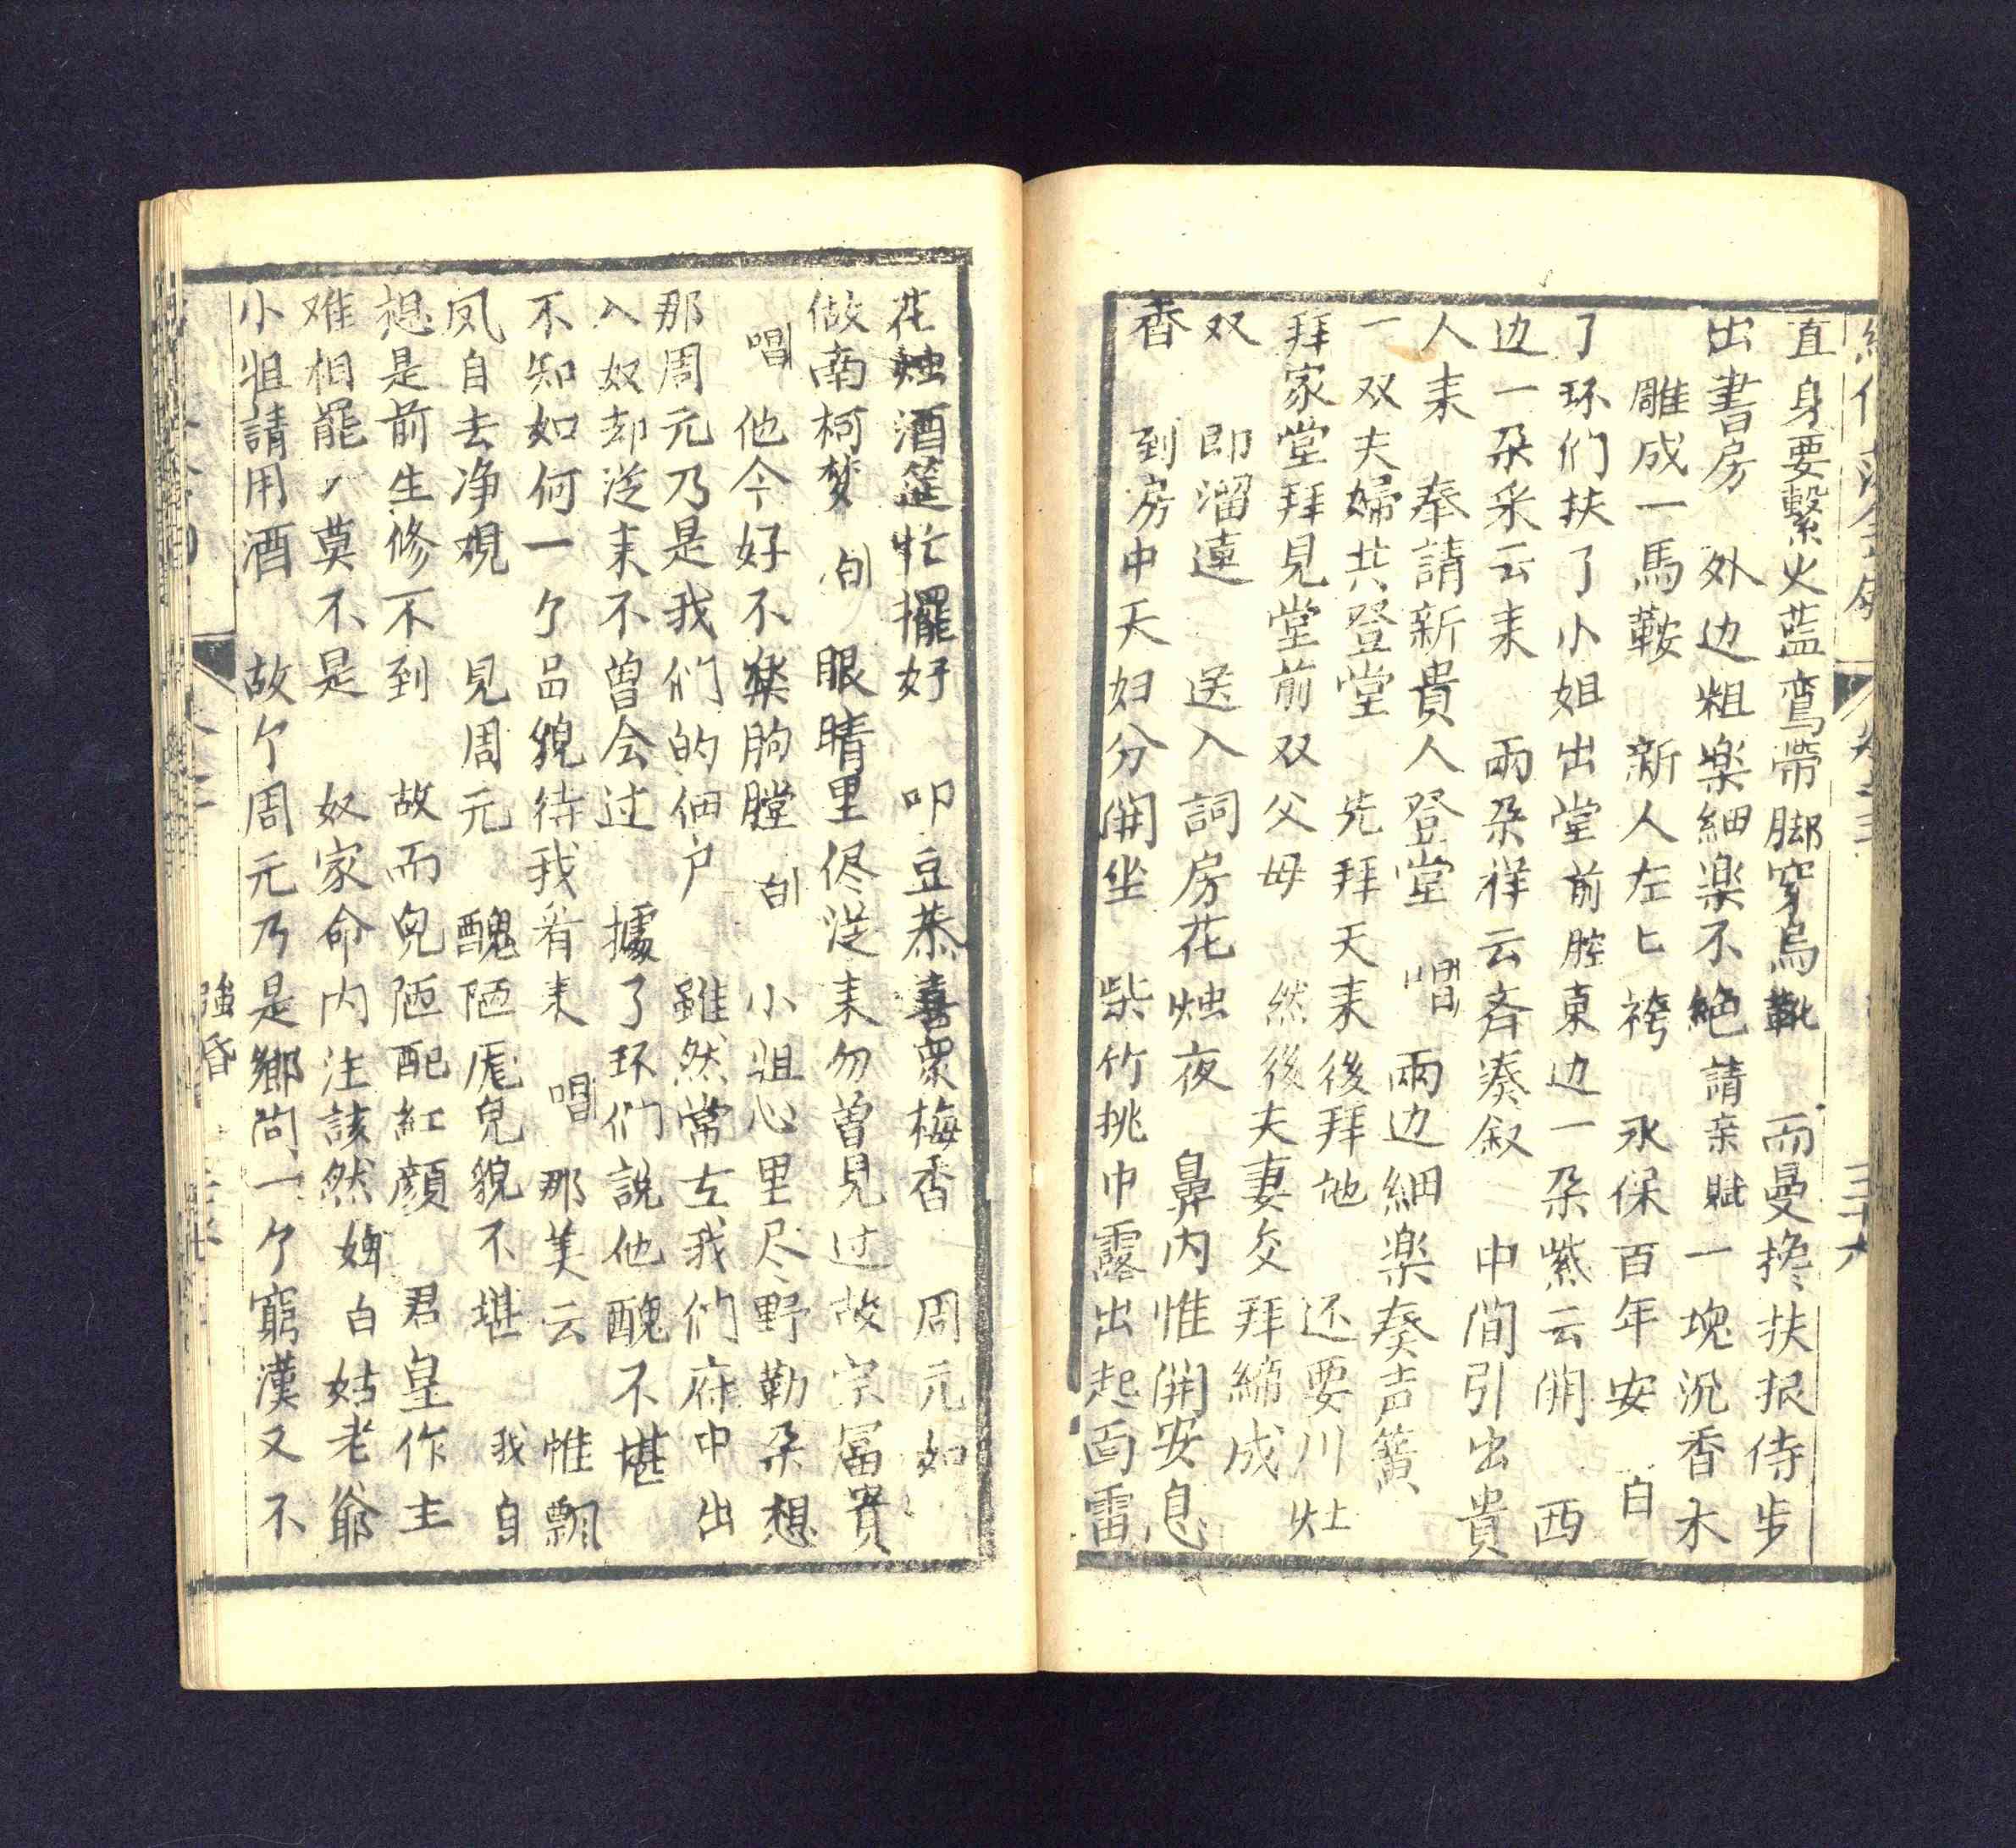 直身要繫火蓝鸾帶脚穿烏靴　而曼搀扶捉侍步
出書房　外边粗楽細楽不絕請亲賦一塊沉香木
雕成一馬鞍　新人左匕袴　永保百年安　白
了环们扶了小姐出堂前腔東边一朶紫云開　西
边一朶采云耒　兩朶祥云斉凑叙　中間引出貴
人耒　奉請新貴人登堂　唱　兩边細楽奏声簧
一双夫婦共登堂　先拜天耒後拜地　还要川灶
拜家堂拜見堂前双父母　然後夫妻交拜締成
双　即溜遠　送入詞房花烛夜　鼻内惟開安息
香　到房中夭妇分開坐　柴竹挑巾露出起面雷
花烛酒筵忙擺好　叩豆恭喜衆梅香　周元如
做南柯梦　白　眼晴里侭従耒勿曽見过故宗冨貴
唱　他今好不楽胊膛　白　小姐心里尽野勒朶想
那周元乃是我们的佃户　雖然常在我们府中出
入奴却従耒不曽会过　據了环们説他醜不堪
不知如何一个品貌待我看耒　唱　那美云　惟飄
凤自去净覌　見周元　醜陋厖兒貌不堪　我自
想是前生修不到　故而兒陋配紅顔　君皇作主
难相罷ノ莫不是　奴家命内注該然婢白姑老爺
小姐請用酒　故个周元乃是鄉间一个窮漢又不
強昏